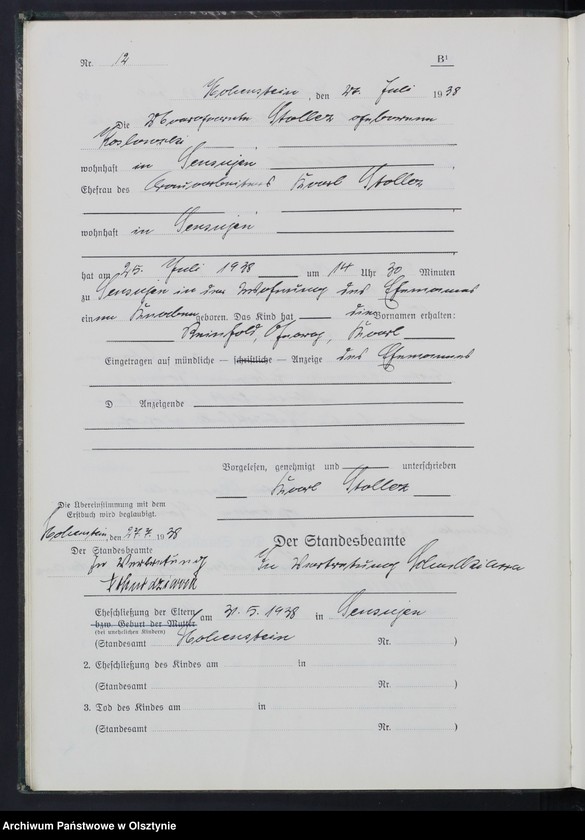 Nr. 12 B¹
Hohenstein, den 27. Juli 1938
Die Margarete Stollez geborene
Koslowski
wohnhaft in Sensujen
Ehefrau des Karl Stollez
wohnhaft in Sensujen
hat am 25. Juli 1938 um 14 Uhr 30 Minuten
zu Sensujen in der Wohnung des Ehemannes
einen Knaben geboren. Das Kind hat die Vornamen erhalten:
Reinhold, Karl
Eingetragen auf mündliche — schriftliche — Anzeige des Ehemannes
D Anzeigende
Vorgelesen, genehmigt und unterschrieben
Karl Stollez
Die Übereinstimmung mit dem
Erstbuch wird beglaubigt.
Hohenstein, den 27.7. 1938
Der Standesbeamte
In Vertretung
Der Standesbeamte
In Vertretung
Eheschließung der Eltern
bzw. Geburt der Mutter am 30.5.1938 in Sensujen
(bei unehelichen Kindern)
(Standesamt Hohenstein Nr. )
2. Eheschließung des Kindes am in
(Standesamt Nr. )
3. Tod des Kindes am in
(Standesamt Nr. )
Archiwum Państwowe w Olsztynie